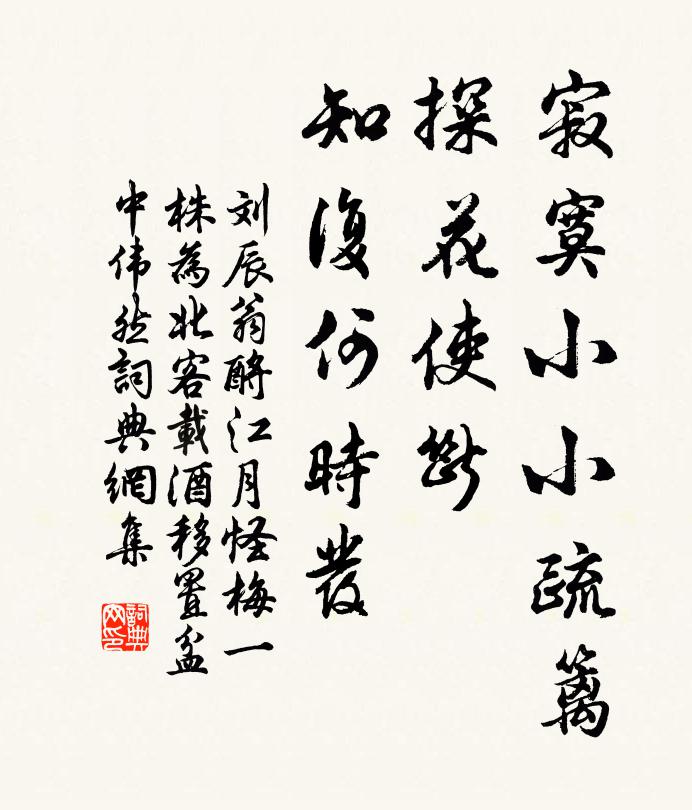 寂寞小小疏篱
探花使断
知復何時發
刘辰翁酹江月怪梅一
株為北客載酒移置盆
中伟然詞典網集
詞典网印